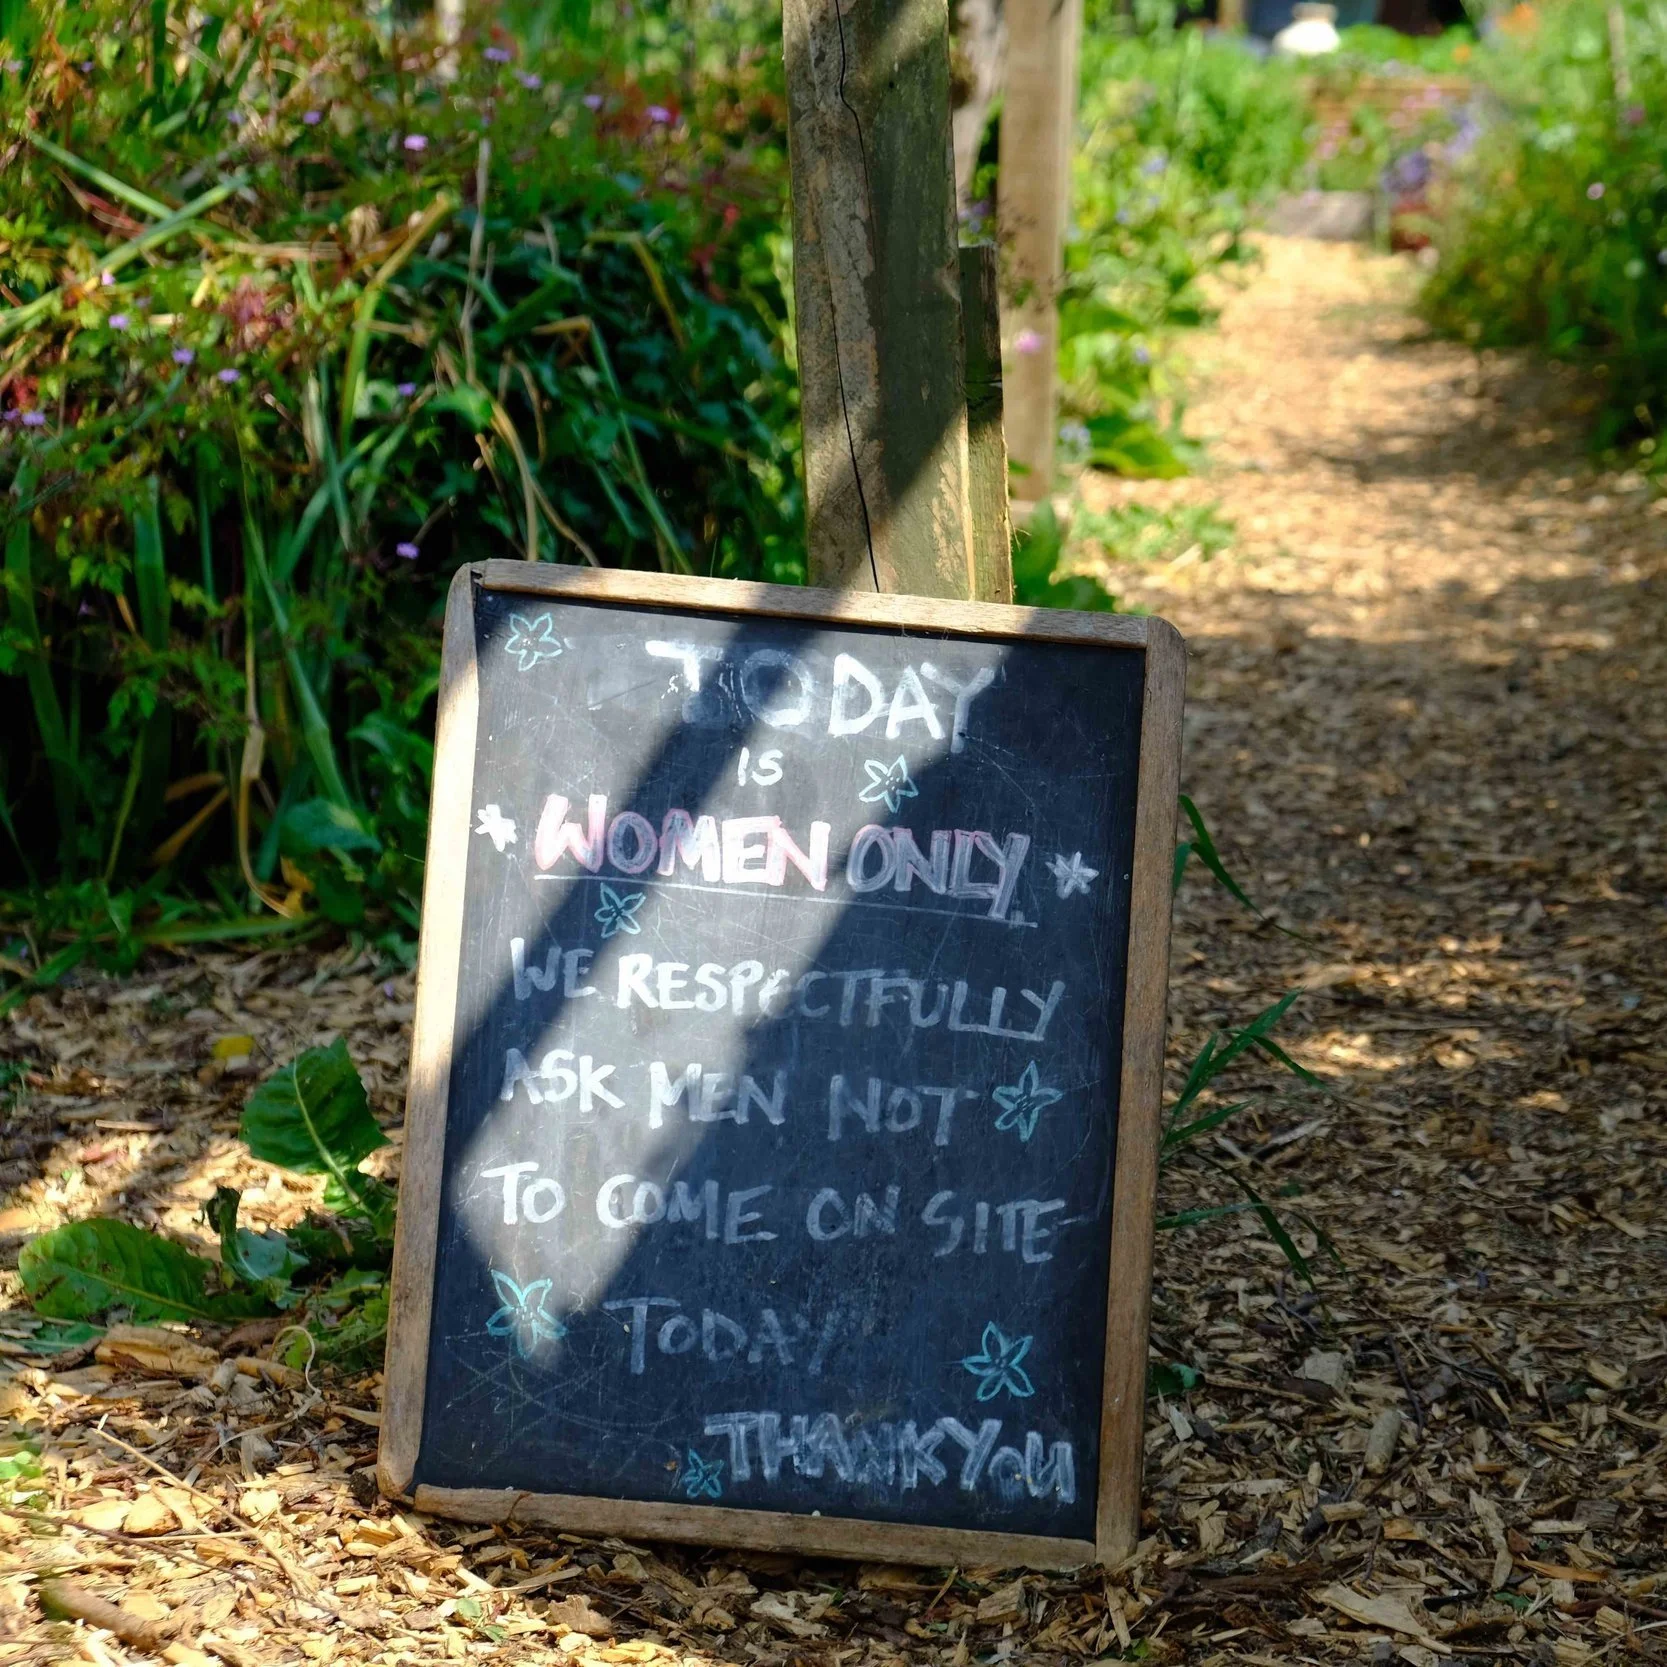 TODAY
IS
WOMEN ONLY
WE RESPECTFULLY
ASK MEN NOT
TO COME ON SITE
TODAY
THANK YOU